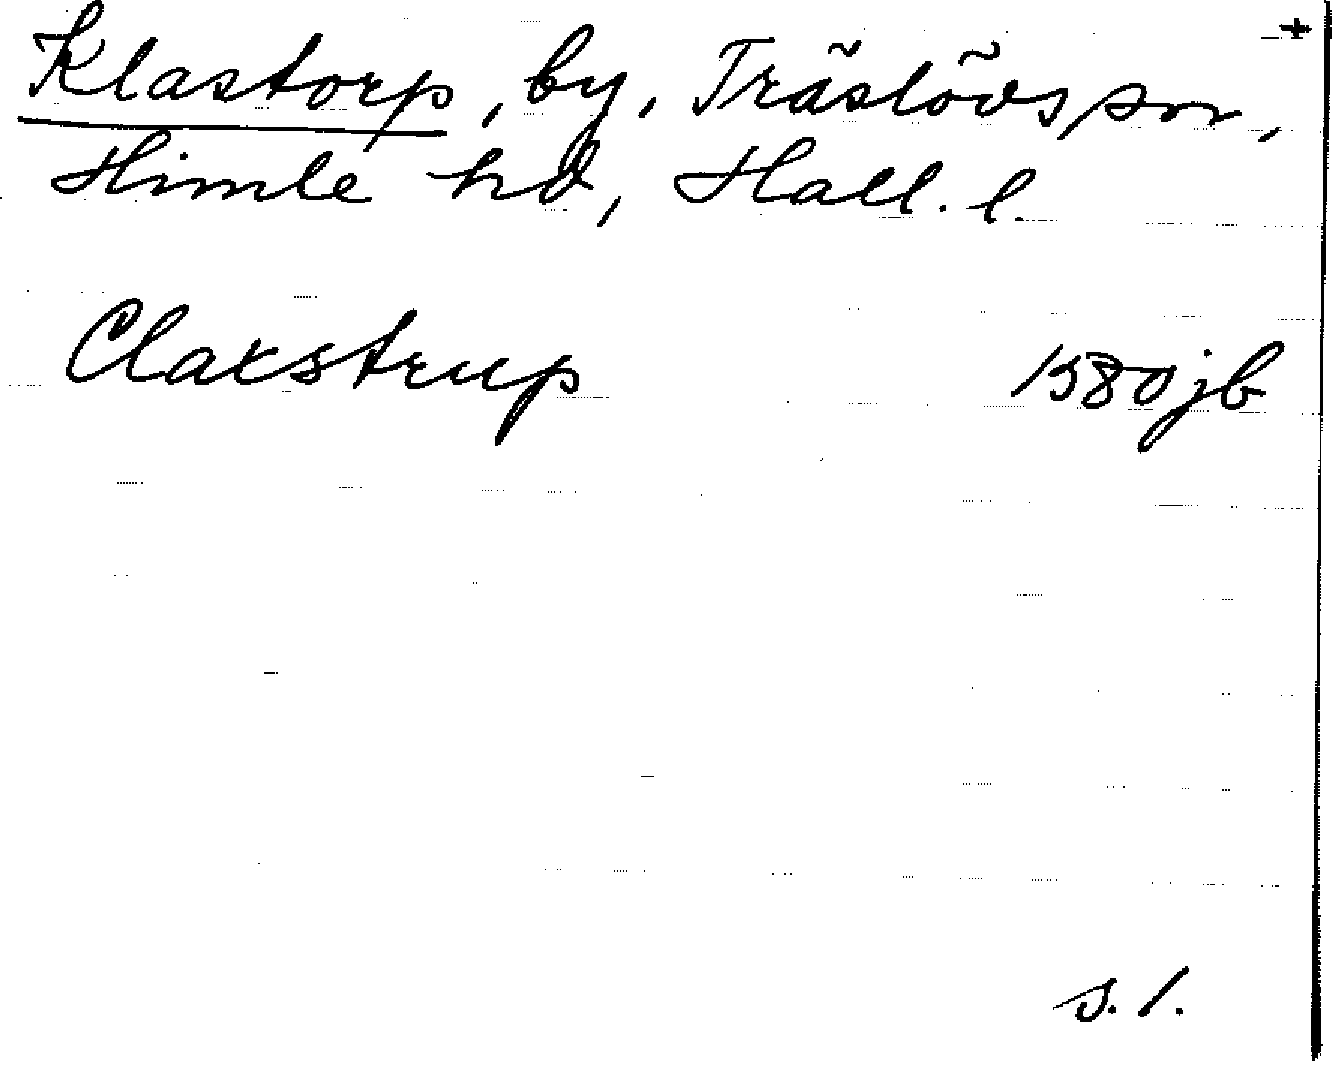 Klastorp, by, Träslövs sn,
Himle hd, Hall. l.
Claxstrup 1580 jb
s. 1.